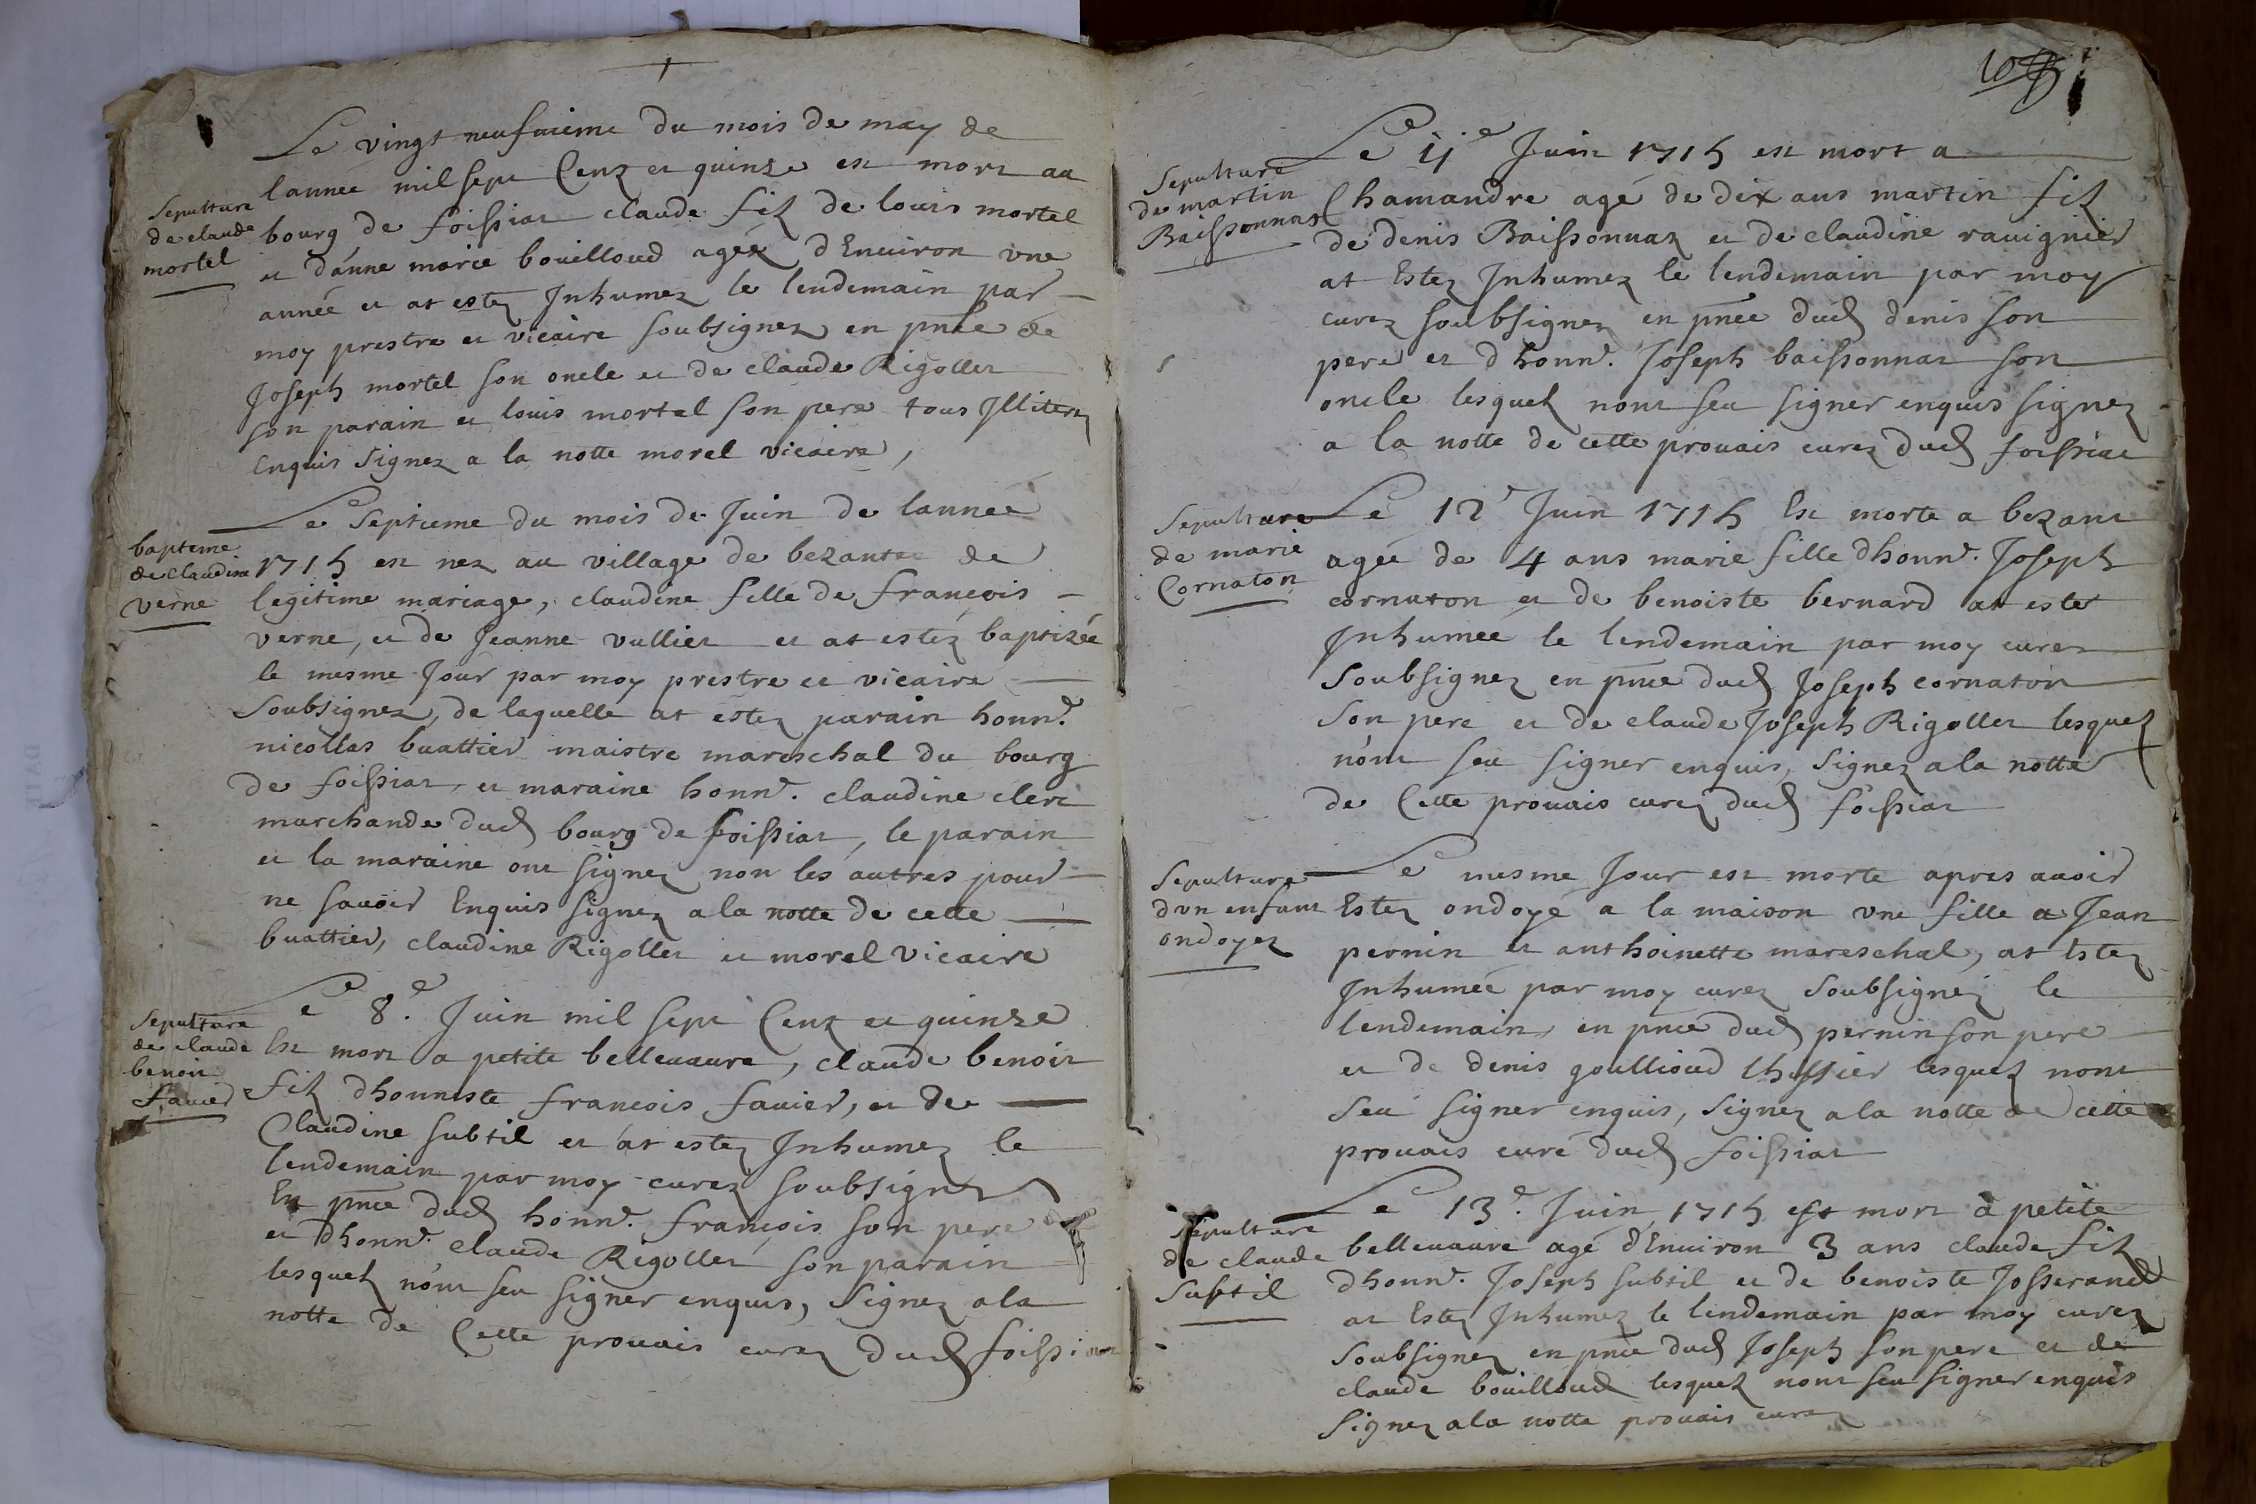 Le vingt neufuieme du mois de may de
lannée mil sept Cenz et quinze est mort au
bourg de foissiat claude filz de louis mortel
et danne marie bouilloud agéz dEnuiron vne
année et at estez Jnhumez le lendemain par
moy prestre et vicaire soubsignez en pnce de
Joseph mortel son oncle et de claude Rigollet
son parain et louis mortel son pere tous Jlliterez
Enquis signez a la notte morel vicaire,
Sepulture
de claude
mortel
Le Septieme du mois de Juin de lannéé
1715 est nez au village de bezantet de
legitime mariage, claudine fille de francois
verne, et de Jeanne vullier et at estéz baptizéé
le mesme Jour par moy prestre et vicaire
Soubsignez, de laquelle at estez parain honn.e
nicollas buattier maistre mareschal du bourg
de foissiat, et maraine honn.e claudine clerc
marchande dud bourg de foissiat, le parain
et la maraine ont signez non les autres pour
ne sauoir Enquis signez a la notte de cette
buattier, claudine Rigollet et morel vicaire
bapteme
de claudine
verne
Le 8.e Juin mil sept Cenz et quinze
Est mort a petite belleuaure, claude benoit
filz dhonneste francois fauier, et de
Claudine subtil et at estez Jnhumez le
lendemain par moy curez soubsignez
En pnce dud honn.e francois son pere
et dhonn.e claude Rigollet son parain
lesquelz nont seu signer enquis, Signez a la
notte de Cette prouais curez dud foissiat
Sepulture
de claude
benoit
fauier
Le 11e Juin 1715 est mort a
Chamandre agé de dix ans martin filz
de denis Baissonnaz et de claudine rauignier
at Estez Jnhumez le lendemain par moy
curez soubsignez en pnce dud denis son
pere et dhonn.e Joseph baissonnat son
oncle lesquelz nont seu signer enquis signez
a la notte de cette prouais curez dud foissiat
Sepulture
de martin
Baissonnaz
Le 12e Juin 1715 Est morte a bezant
agéé de 4 ans marie fille dhonn.e Joseph
cornaton et de benoiste bernard at este
Jnhuméé le lendemain par moy curez
Soubsignez en pnce dud Joseph cornaton
Son pere et de claude Joseph Rigollet lesquelz
nont seu signer enquis, Signez a la notte
de Cette prouais curez dud foissiat
Sepulture
de marie
Cornaton
Le mesme Jour est morte apres auoir
Estez ondoyé a la maison vne fille a Jean
pernin et anthoinette mareschal, at Estez
Jnhuméé par moy curez Soubsignez le
lendemain, en pnce dud pernin son pere
et de denis goullioud lhussier lesquelz nont
seu signer enquis, Signez a la notte de cette
prouais curé dud foissiat
Sepulture
dvn enfant
ondoyez
Le 13.e Juin 1715 est mort à petite
belleuaure agé dEnuiron 3 ans claude filz
dhonn.e Joseph subtil et de benoiste Josserand
at Estez Jnhumez le lendemain par moy curez
Soubsignez en pnce dud Joseph son pere et de
claude bouilloud lesquelz nont seu signer enquis
Signez a la notte prouais curez
Sepulture
de claude
Subtil